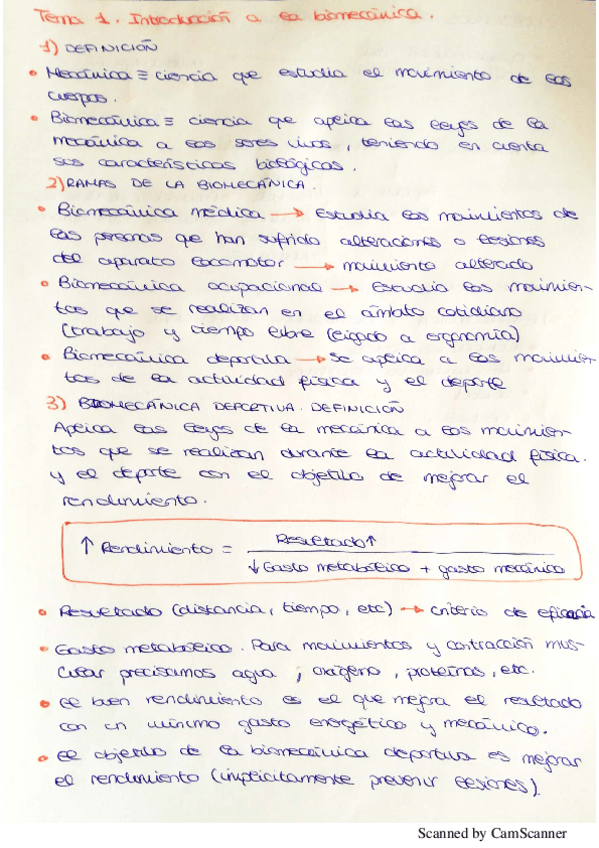 Tema 1. Introducción a la biomecánica.
1) DEFINICIÓN
• Mecánica ≡ ciencia que estudia el movimiento de los
cuerpos.
• Biomecánica ≡ ciencia que aplica las leyes de la
mecánica a los seres vivos, teniendo en cuenta
sus características biológicas.
2) RAMAS DE LA BIOMECÁNICA.
• Biomecánica médica → estudia los movimientos de
las personas que han sufrido alteraciones o lesiones
del aparato locomotor → movimiento alterado
• Biomecánica ocupacional → Estudia los movimien-
tos que se realizan en el ámbito cotidiano
(trabajo y tiempo libre (ligado a ergonomía)
• Biomecánica deportiva → se aplica a los movimien-
tos de la actividad física y el deporte
3) BIOMECÁNICA DEPORTIVA. DEFINICIÓN
Aplica las leyes de la mecánica a los movimien-
tos que se realizan durante la actividad física.
y el deporte con el objetivo de mejorar el
rendimiento.
↑ Rendimiento = Resultado ↑
↓ Gasto metabólico + gasto mecánico
• Resultado (distancia, tiempo, etc) → criterio de eficacia
• Gasto metabólico. Para movimientos y contracción mus-
cular precisamos agua, oxígeno, proteínas, etc.
• El buen rendimiento es el que mejora el resultado
con un mínimo gasto energético y mecánico.
• El objetivo de la biomecánica deportiva es mejorar
el rendimiento (implícitamente prevenir lesiones)
Scanned by CamScanner